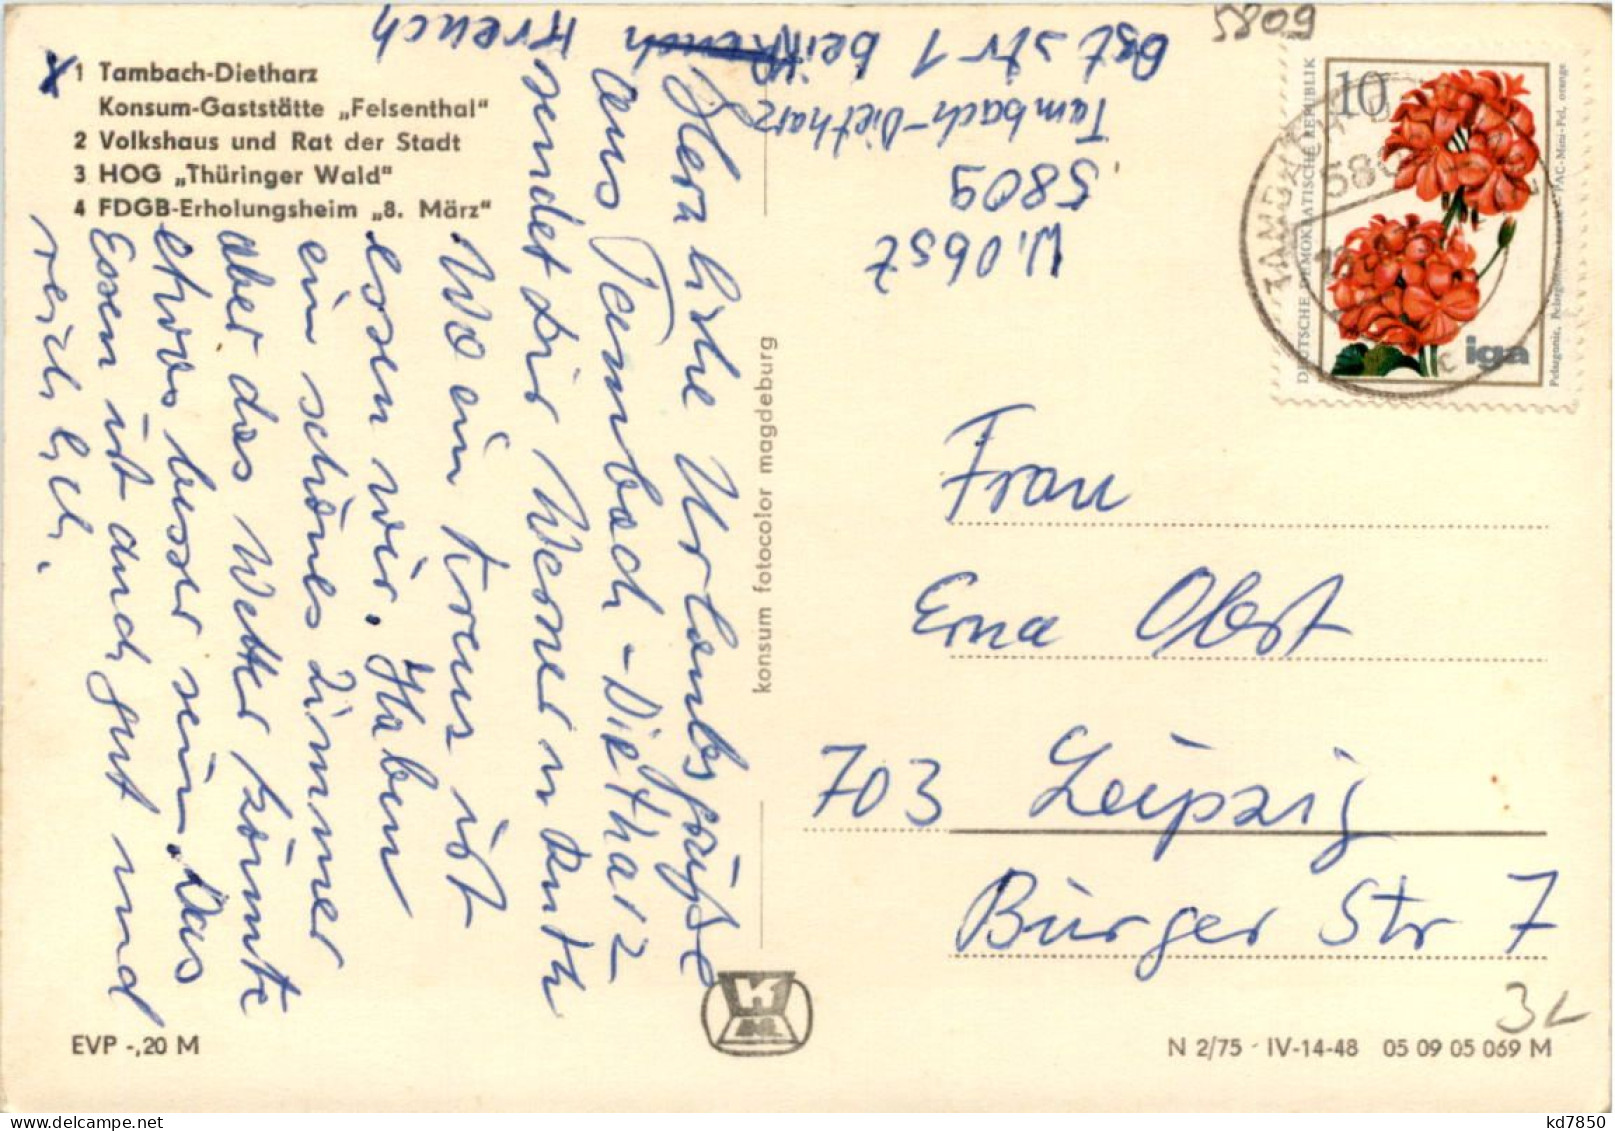 1 Tambach-Dietharz
Konsum-Gaststätte „Felsenthal"
2 Volkshaus und Rat der Stadt
3 HOG „Thüringer Wald"
4 FDGB-Erholungsheim „8. März"
W. Obst
5809
Tambach-Dietharz
Ost str 1 bei Kreuch
Herzliche Urlaubsgrüße
aus Tambach-Dietharz
sendet dir Werner u Ruth
Wo ein Kreuz ist
essen wir. Haben
ein schönes Zimmer
aber das Wetter könnte
etwas besser sein. Das
Essen ist auch gut und
reichlich.
konsum fotocolor magdeburg
5809
10
DEUTSCHE DEMOKRATISCHE REPUBLIK
iga
Frau
Erna Obst
703 Leipzig
Bürger Str 7
3L
EVP -,20 M
N 2/75 · IV-14-48 05 09 05 069 M
kd7850